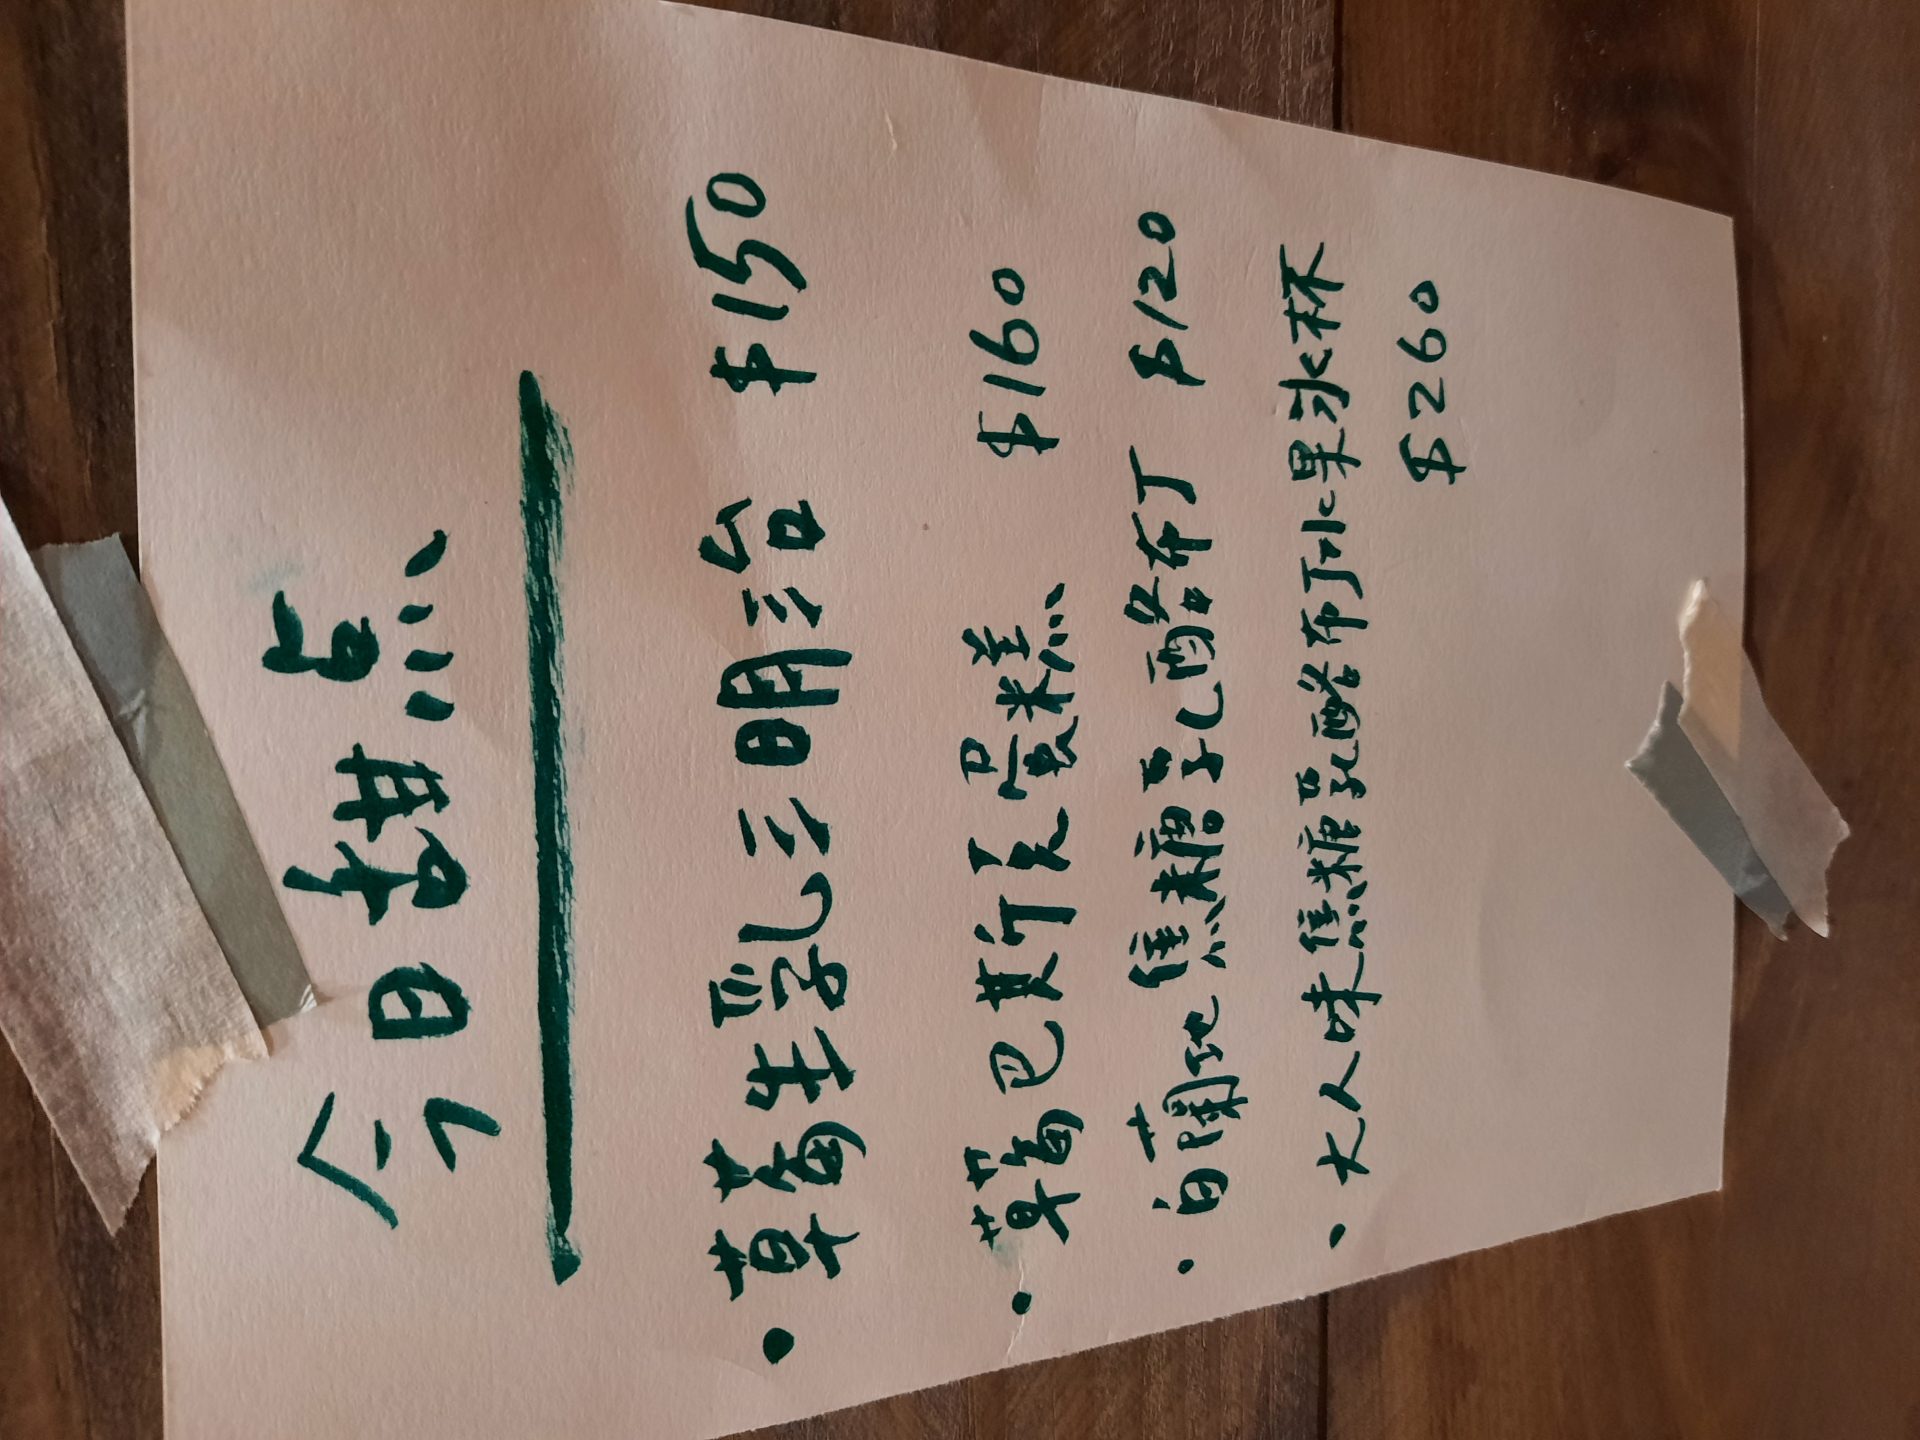 今日甜点
・草莓生乳三明治 $150
・草莓巴斯克蛋糕 $160
・白蘭地焦糖乳酪布丁 $120
・大人味焦糖乳酪布丁水果冰杯
$260